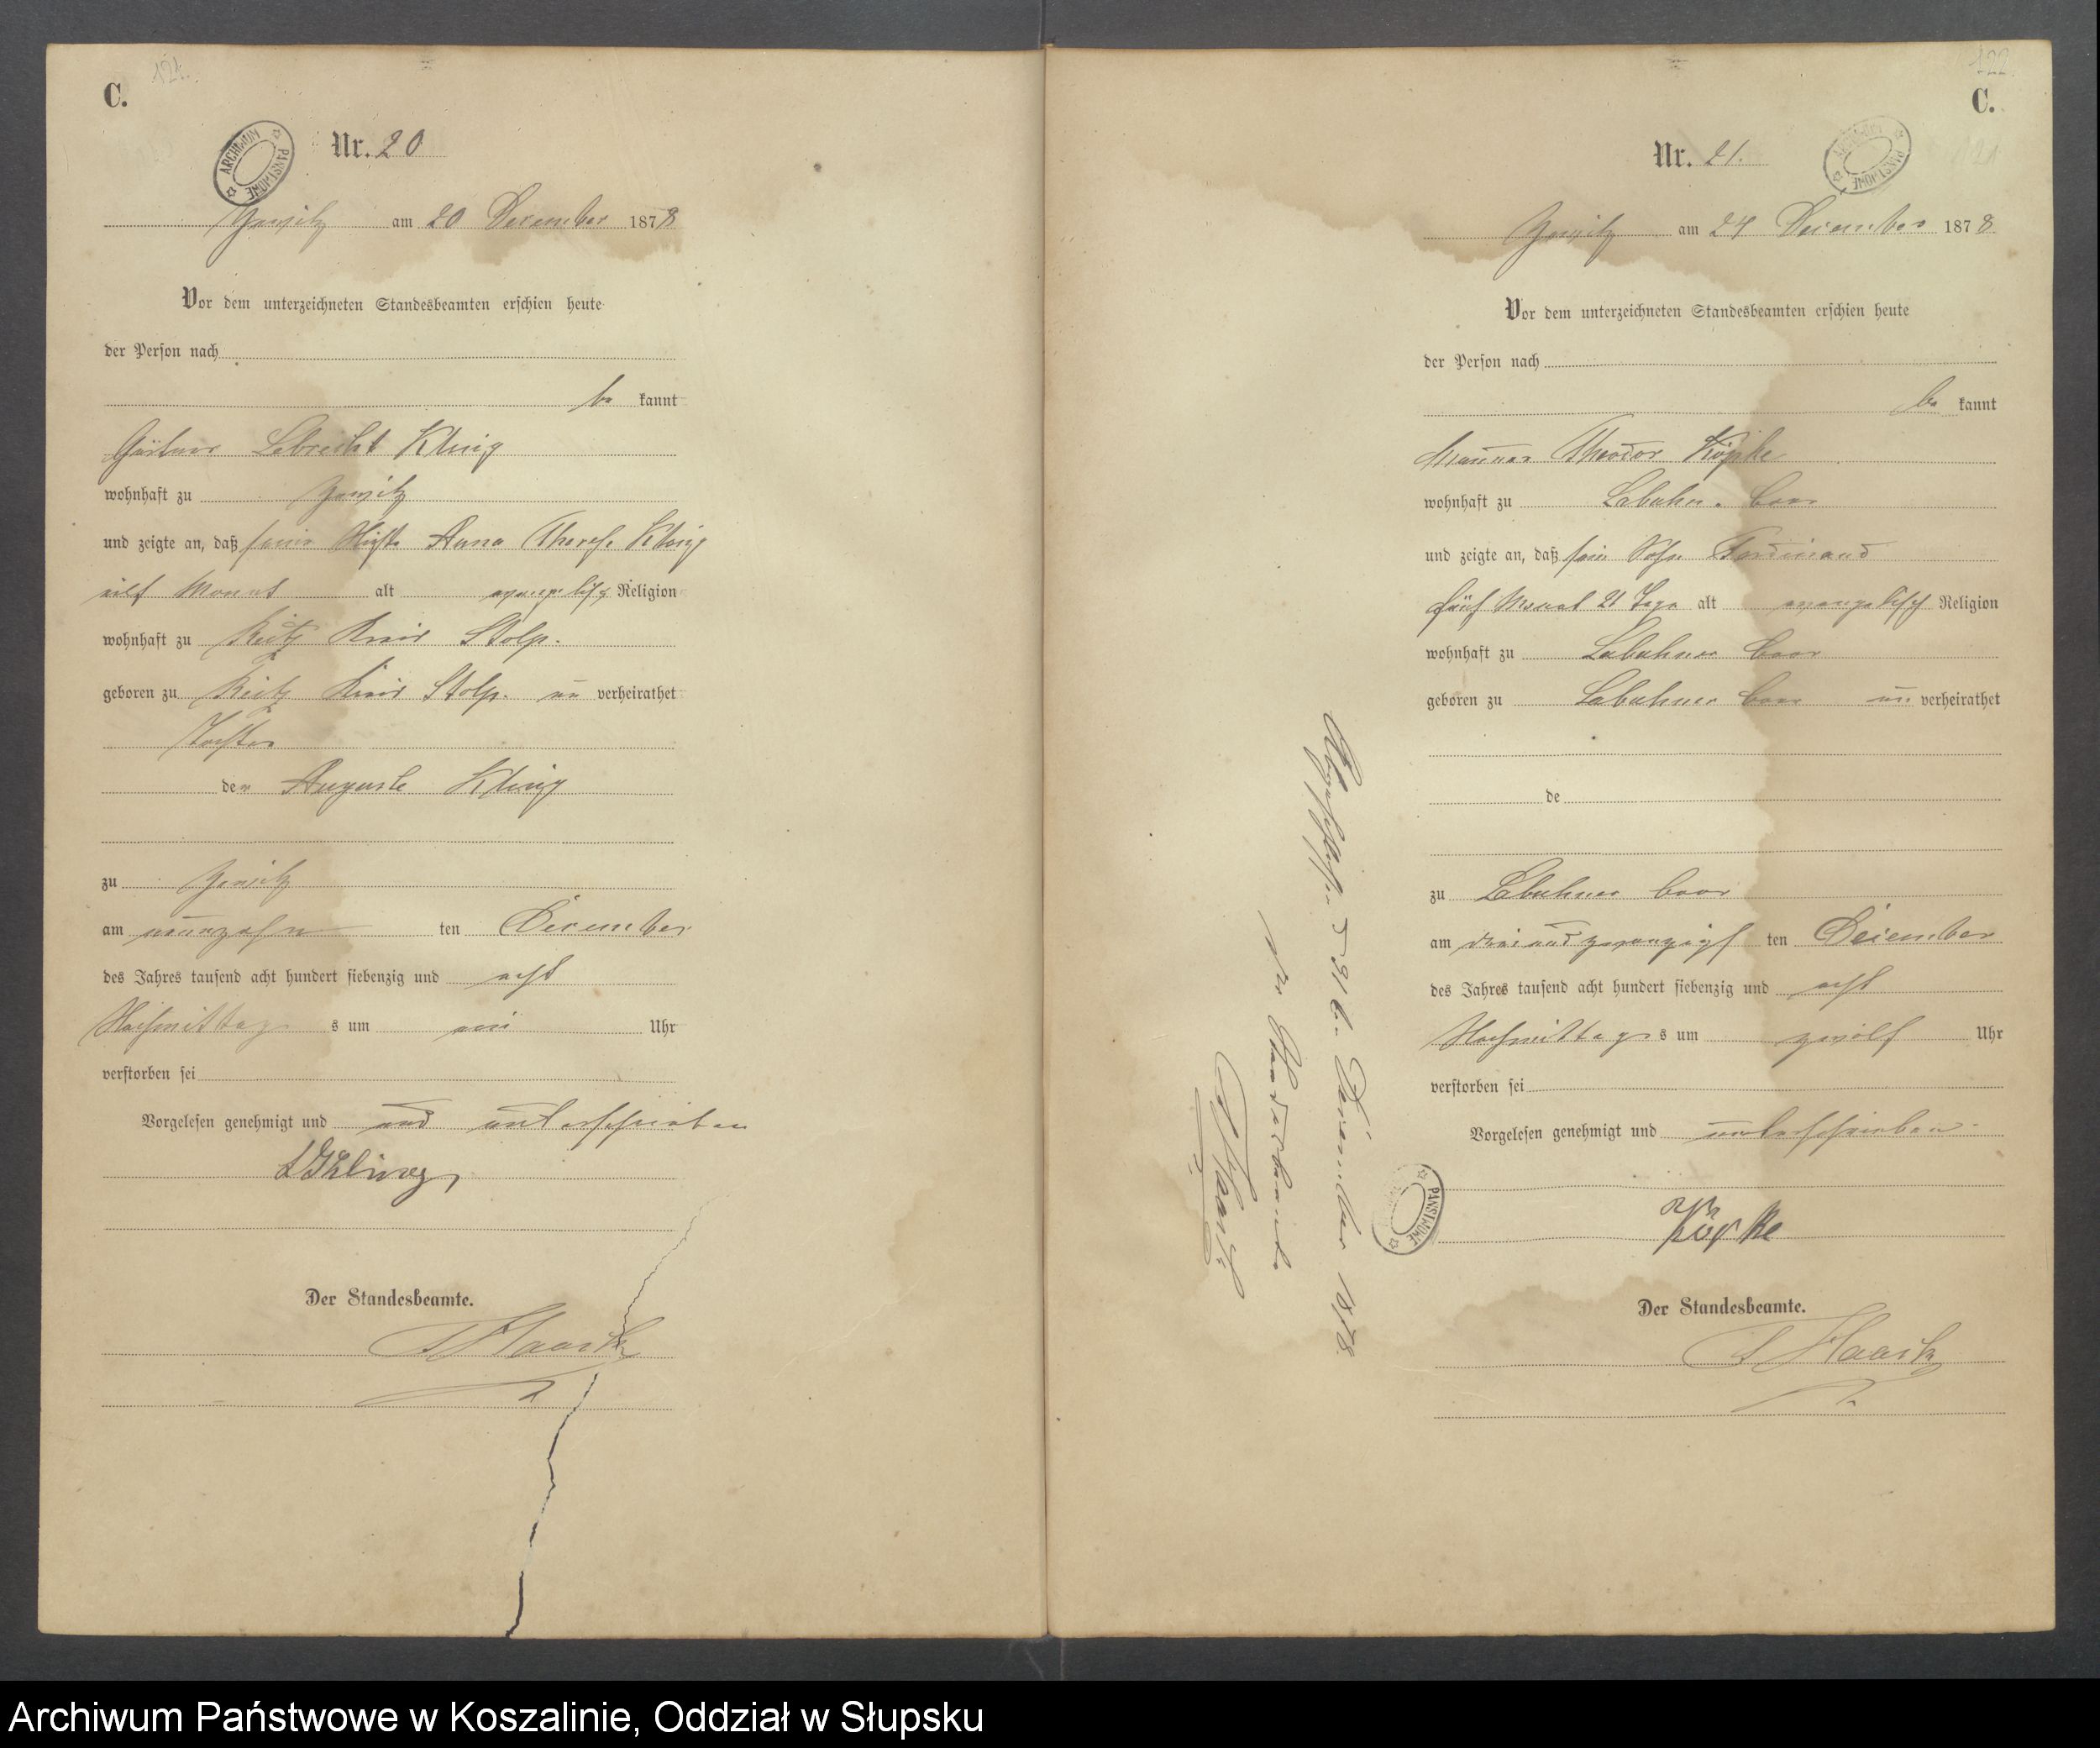 C.
Nr. 20
Gewitz am 20 December 1878
Vor dem unterzeichneten Standesbeamten erschien heute
der Person nach
be kannt
Gärtner Lebrecht Kling
wohnhaft zu Gewitz
und zeigte an, daß seine Anna Kling
elf Monat alt evangelisch Religion
wohnhaft zu Kreis Stolp.
geboren zu Kreis Stolp. un verheirathet
Tochter
der Auguste Kling
zu Gewitz
am neunzehn ten December
des Jahres tausend acht hundert siebenzig und acht
Nachmittag s um ein Uhr
verstorben sei
Vorgelesen genehmigt und und unterschrieben
Kling
Der Standesbeamte.
Haack
C.
122.
Nr. 21.
Gewitz am 24 December 1878
Vor dem unterzeichneten Standesbeamten erschien heute
der Person nach
be kannt
Theodor Köpke
wohnhaft zu
und zeigte an, daß sein Sohn Ferdinand
fünf Monat 21 Tage alt evangelisch Religion
wohnhaft zu Labuhner
geboren zu Labuhner un verheirathet
de
zu Labuhner
am dreiundzwanzigst ten December
des Jahres tausend acht hundert siebenzig und acht
Nachmittag s um zwölf Uhr
verstorben sei
Vorgelesen genehmigt und unterschrieben
Köpke
Der Standesbeamte.
Haack
Abgeschlossen d 31 December 1878.
Der Standesbeamte
Haack
ARCHIWUM PAŃSTWOWE
Archiwum Państwowe w Koszalinie, Oddział w Słupsku